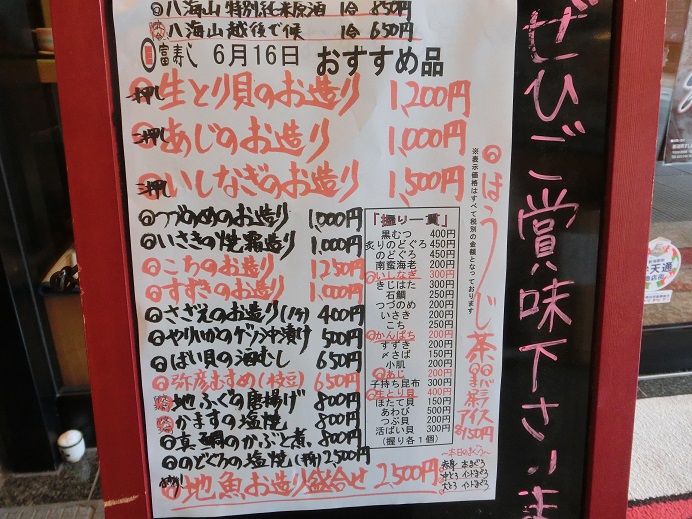 八海山 特別純米原酒 1合 850円
八海山 越後で候 1合 650円
富寿し 6月16日 おすすめ品
一押し 生とり貝のお造り 1,200円
二押し あじのお造り 1,000円
三押し いしなぎのお造り 1,500円
つづのめのお造り 1,000円
いさきの焼霜造り 1,000円
こちのお造り 1,250円
すずきのお造り 1,000円
さざえのお造り(1ケ) 400円
やりいかの沖漬け 500円
ばい貝の酒むし 650円
弥彦むすめ(枝豆) 650円
地ふぐの唐揚げ 800円
かますの塩焼 800円
真鯛のかぶと煮 800円
のどぐろの塩焼 2,500円
地魚お造り盛合せ 2,500円
「握り一貫」
黒むつ 400円
炙りのどぐろ 450円
のどぐろ 450円
南蛮海老 200円
いしなぎ 300円
きじはた 300円
石鯛 250円
つづのめ 200円
いさき 200円
こち 250円
かんぱち 200円
すずき 200円
〆さば 150円
小肌 200円
あじ 200円
子持ち昆布 300円
生とり貝 400円
ほたて貝 150円
あわび 500円
つぶ貝 200円
活ばい貝 300円
(握り各1個)
※表示価格はすべて税別の金額となっております
ほうじ茶
アイス
各150円
~本日のまぐろ~
赤身 本まぐろ
中とろ インドまぐろ
大とろ インドまぐろ
ぜひご賞味下さいま
天通